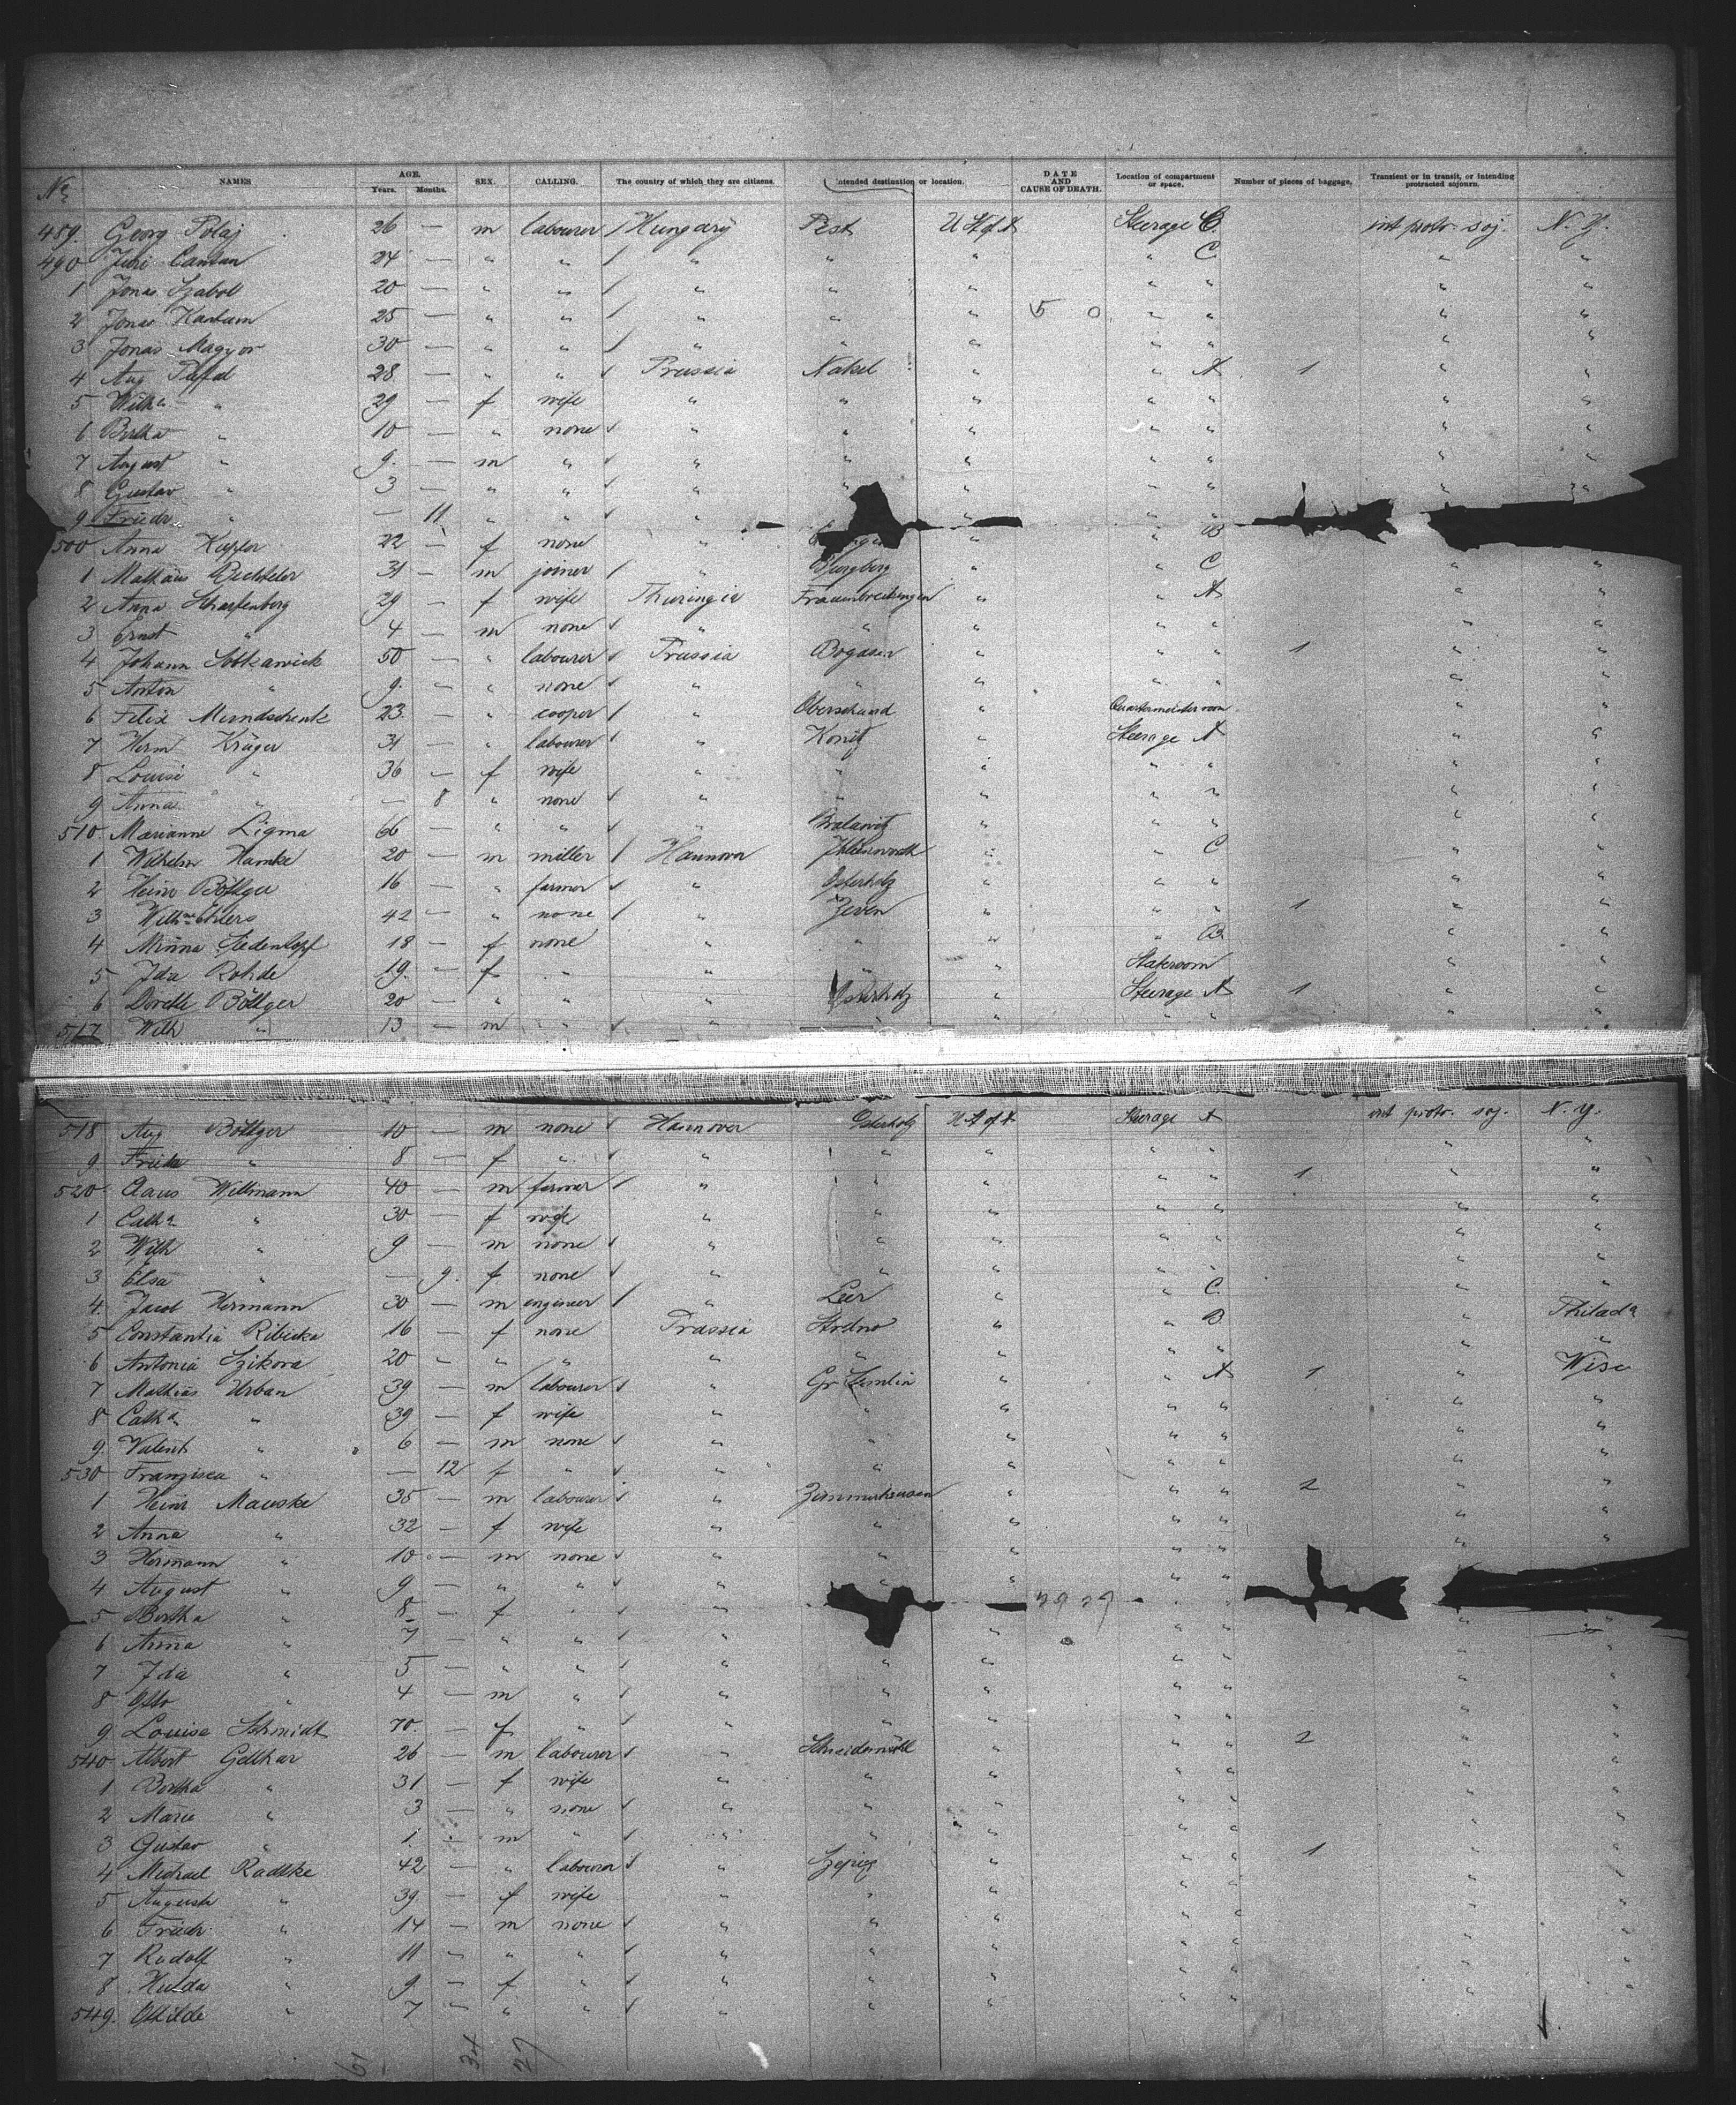 No. NAMES AGE. Years. Months. SEX. CALLING. The country of which they are citizens. Intended destination or location. DATE AND CAUSE OF DEATH. Location of compartment or space. Number of pieces of baggage. Transient or in transit, or intending protracted sojourn.
489. Georg Polaj 26 — m labourer / Hungary Pest U St of A Steerage C. int protr. soj. N. Y.
490 Juri Cantan 24 — " " / " " " " C " "
1 Jonas Szabol 20 — " " / " " " " " " "
2 Jonas Kantum 25 — " " / " " " 5 0 " " " "
3 Jonas Magyor 30 — " " / " " " " " " "
4 Aug Plefel 28 — " " / Prussia Nakel " " A 1 " "
5 Wilha " 29 — f wife " " " " " " "
6 Bertha " 10 — " none / " " " " " " "
7 August " 9. — m " / " " " " " " "
8 Gustav " 3 — " " / " " " " " " "
9 Friedr. " — 11 " " / " " " "
500 Anna Kupfer 22 — f none " " " B
1 Mathäus Bechteler 31 — m joiner / " Burgberg " " C " "
2 Anna Scharfenberg 29 — f wife Thuringia Frauenbreitungen " " A " "
3 Ernst " 4 — m none / " " " " " " "
4 Johann Sobkawick 50 — " labourer / Prussia Bogasen " " " 1 " "
5 Anton " 9. — " none / " " " " " " "
6 Felix Mundschenk 23 — " cooper / " " Quartermeister room " "
7 Herm Krüger 31 — " labourer / " Konitz " Steerage A " "
8 Louise " 36 — f wife " " " " " " "
9 Anna " — 8 " none / " " " " " " "
510. Marianne Ligma 66 — " " / " " " " " "
1 Wilhelm Hamke 20 — m miller / Hannover Ihlienworth " " C " "
2 Heinr Böttger 16 — " farmer / " Osterholz " " " " "
3 Wilhm Ehlers 42 — " none / " Zeven " " " 1 " "
4 Minna Siedentopf 18 — f none " " " " B. " "
5 Ida Rohde 19. — f " " " " Stateroom " "
6 Dorette Böttger 20 — " " " Osterholz " Steerage A 1 " "
517 Wilh " 13 — m " / " " " " " " "
518 Aug Böttger 10 — m none / Hannover Osterholz U St of A Steerage A int protr. soj. N. Y.
9 Frieda " 8 — f " / " " " " " " "
520 Claus Willmann 40 — m farmer / " " " " " 1 " "
1 Catha " 30 — f wife " " " " " " "
2 Wilh " 9 — m none / " " " " " " "
3 Elsa " — 9. f none / " " " " " " "
4. Jacob Hermann 30 — m engineer / " Leer " " C. " "
5 Constantia Ribicka 16 — f none Prussia Strelno " " B " Philada
6 Antonia Szikora 20 — " " " " " " " " "
7 Mathias Urban 39 — m labourer / " Gr Semlin " " A 1 " Wisc
8 Catha " 39 — f wife " " " " " " "
9. Valent " 6 — m none / " " " " " " "
530 Franzisca " — 12 f " / " " " " " " "
1 Heinr Mauske 35 — m labourer / " Zimmerhausen " " " 2 " "
2 Anna " 32 — f wife " " " " " " "
3 Hermann " 10 — m none / " " " " " " "
4 August " 9 — " " / " " " " "
5 Bertha " 8 — f " / " "
6 Anna " 7 — " " / " " " " " "
7 Ida " 5 — " " / " " " " " " "
8 Otto " 4 — m " / " " " " " " "
9 Louise Schmidt 70. — f " / " " " " " " "
540 Albert Gellhar 26 — m labourer / " Schneidemühl " " " 2 " "
1 Bertha " 31 — f wife " " " " " " "
2 Marie " 3 — " none / " " " " " " "
3 Gustav " 1 — m " / " " " " " " "
4 Michael Radtke 42 — " labourer / " " " " 1 " "
5 Auguste " 39. — f wife " " " " " " "
6 Friedr. " 14 — m none / " " " " " " "
7 Rudolf " 11 — " " / " " " " " " "
8 Hulda " 9 — f " / " " " " " " "
549. Othilde " 7 — " " / " " " " " "
61 34 27